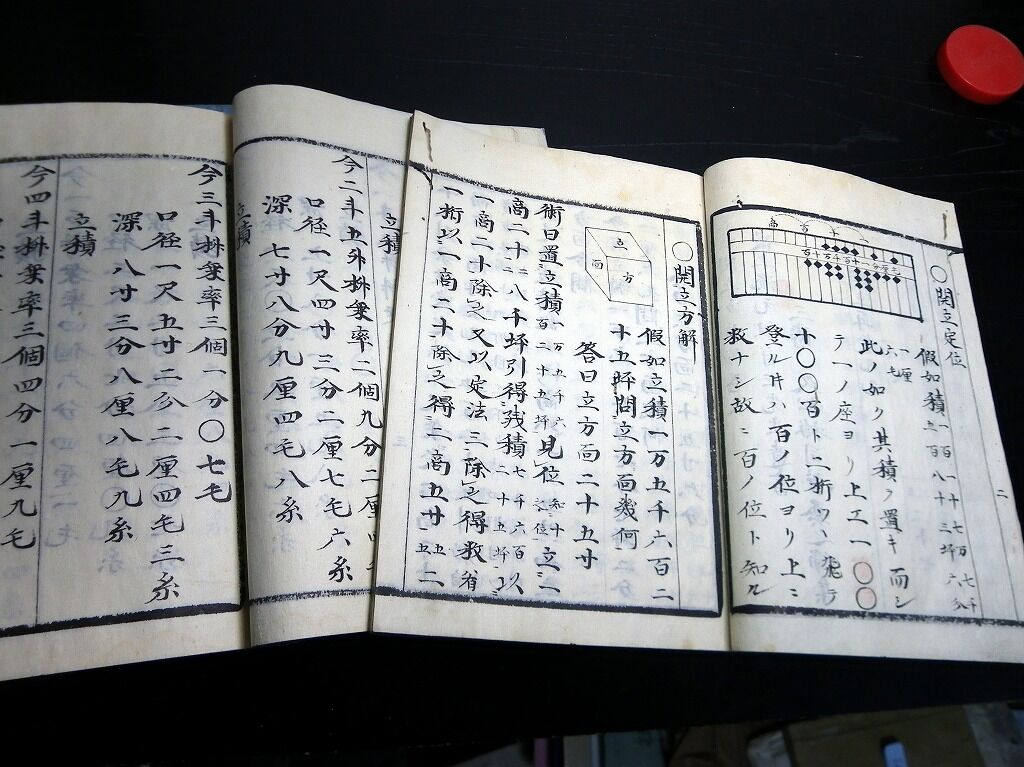 二
○開立定位
假如積一百一十七万七千
一厘六毛
此ノ如ク其積ヲ置キ而シ
テ一ノ座ヨリ上エ一○○
十○○百ト二折ツヽ飛テ
登ル㐧ハ百ノ位ヨリ上ニ
救ナシ故ニ百ノ位ト知ル
○開立方解
假如立積一万五千六百二
十五坪問立方面幾何
答曰立方面二十五寸
立
面
方
術曰置立積一万五千六百二十五坪見位
商二十二八千坪引得残積七千六百二十五坪以
一商二十除之又以定法三除之得救省
一術以一商二十除之得二商五寸
立積
今二斗五升枡乗率二個九分二厘
口径一尺四寸三分二厘七毛六糸
深七寸八分九厘四毛八糸
立積
今三斗枡乗率三個一分○七毛
口径一尺五寸二分二厘四毛三糸
深八寸三分八厘八毛九糸
立積
今四斗枡乗率三個四分一厘九毛